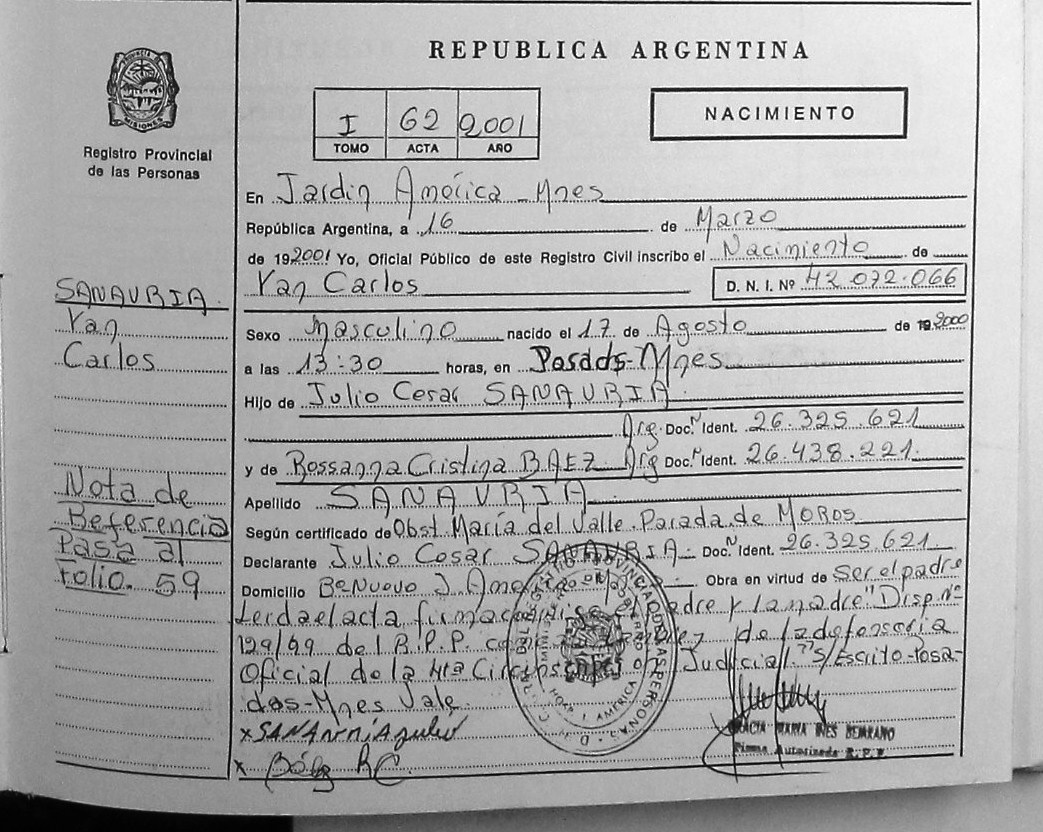 REPUBLICA ARGENTINA
PROVINCIA DE MISIONES
Registro Provincial
de las Personas
I 62 2001
TOMO ACTA AÑO
NACIMIENTO
En Jardin América - Mnes
República Argentina, a 16 de Marzo
de 19 2001 Yo, Oficial Público de este Registro Civil inscribo el Nacimiento de
Yan Carlos D. N. I. Nº 42.072.066
SANAURIA
Yan
Carlos
Sexo Masculino nacido el 17 de Agosto de 19 2000
a las 13:30 horas, en Posadas-Mnes
Hijo de Julio Cesar SANAURIA
Arg. Doc.N Ident. 26.325.621
y de Rossanna Cristina BAEZ Arg Doc.N Ident. 26.438.221
Apellido SANAURIA
Según certificado de Obst. María del Valle Parada de MOROS
Declarante Julio Cesar SANAURIA Doc.N Ident. 26.325.621
Domicilio Bº Nuevo J. América Obra en virtud de Ser el padre
Nota de
Referencia
Pasa al
Folio 59
Leida el acta firma padre y la madre "Disp. Nº
129/99 del R.P.P. de la defensoria
Oficial de la 4ta Judicial "S/Escrito-Posa-
das-Mnes Vale
x SANAuriA Julio
x Báez RC.
REGISTRO PROVINCIAL DE LAS PERSONAS
AMERICA
GRACIA MARIA INES BEJARANO
Firma Autorizada R.P.P.